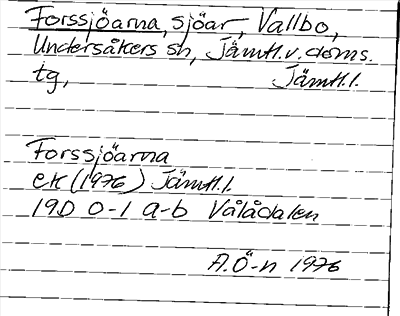 Forssjöarna, sjöar, Vallbo,
Undersåkers sn, Jämtl.v. doms.
tg, Jämtl.l.
Forssjöarna
ek (1976) Jämtl.l.
19D 0-1 a-b Vålådalen
A.Ö-n 1976